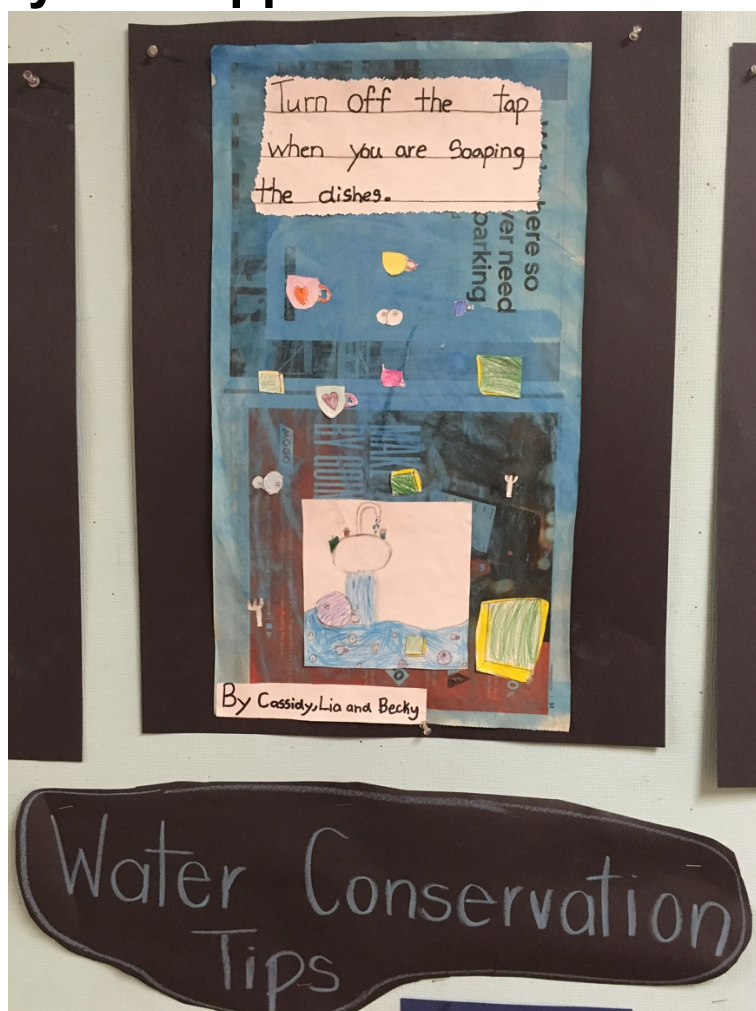 Turn off the tap
when you are Soaping
the dishes.
here so
ver need
parking
By Cassidy, Lia and Becky
Water Conservation
Tips